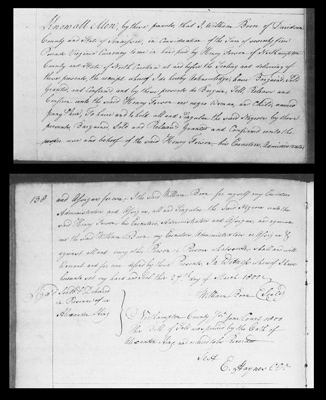 Know all Men by these presents, that I William Bore of Davidson
County and State of Tennessee, in Consideration of the Sum of seventy five
Pounds Virginia Currency to me in hand paid by Henry Person of Northampton
County and State of North Carolina at and before the Sealing and delivering of
these presents, the receipt whereof I do hereby acknowledge, have Bargained, Sold
Granted, and Confirmed and by these presents do Bargain, Sell, Release and
Confirm unto the said Henry Person one negro Woman, and Child, named
To have and to hold all and Singular the said Negroes by these
presents, Bargained, Sold and Released Granted and Confirmed unto the
use and behalf of the said Henry Person, his Executors, Administrators
138
and Assigns forever, I the said William Bore for myself my Executors
Administrators and Assigns, all and Singular the said Negroes unto the
said Henry Person, his Executors, Administrators and Assigns, and against
me the said William Bore, my Executors, Administrators or Assigns &
against all and every other Person or Persons whatsoever, shall and will
Warrant and for ever defend by these Presents, In Witness whereof I have
hereunto set my hand and Seal this 27th day of March 1800
William Bore (Seal)
Signed Seal'd & Deliver'd
in Presence of us
Alexander King
Northampton County June Court 1800
This Bill of Sale was proved by the Oath of
Alexander King and ordered to be Recorded
Test
E. Haynes CCC